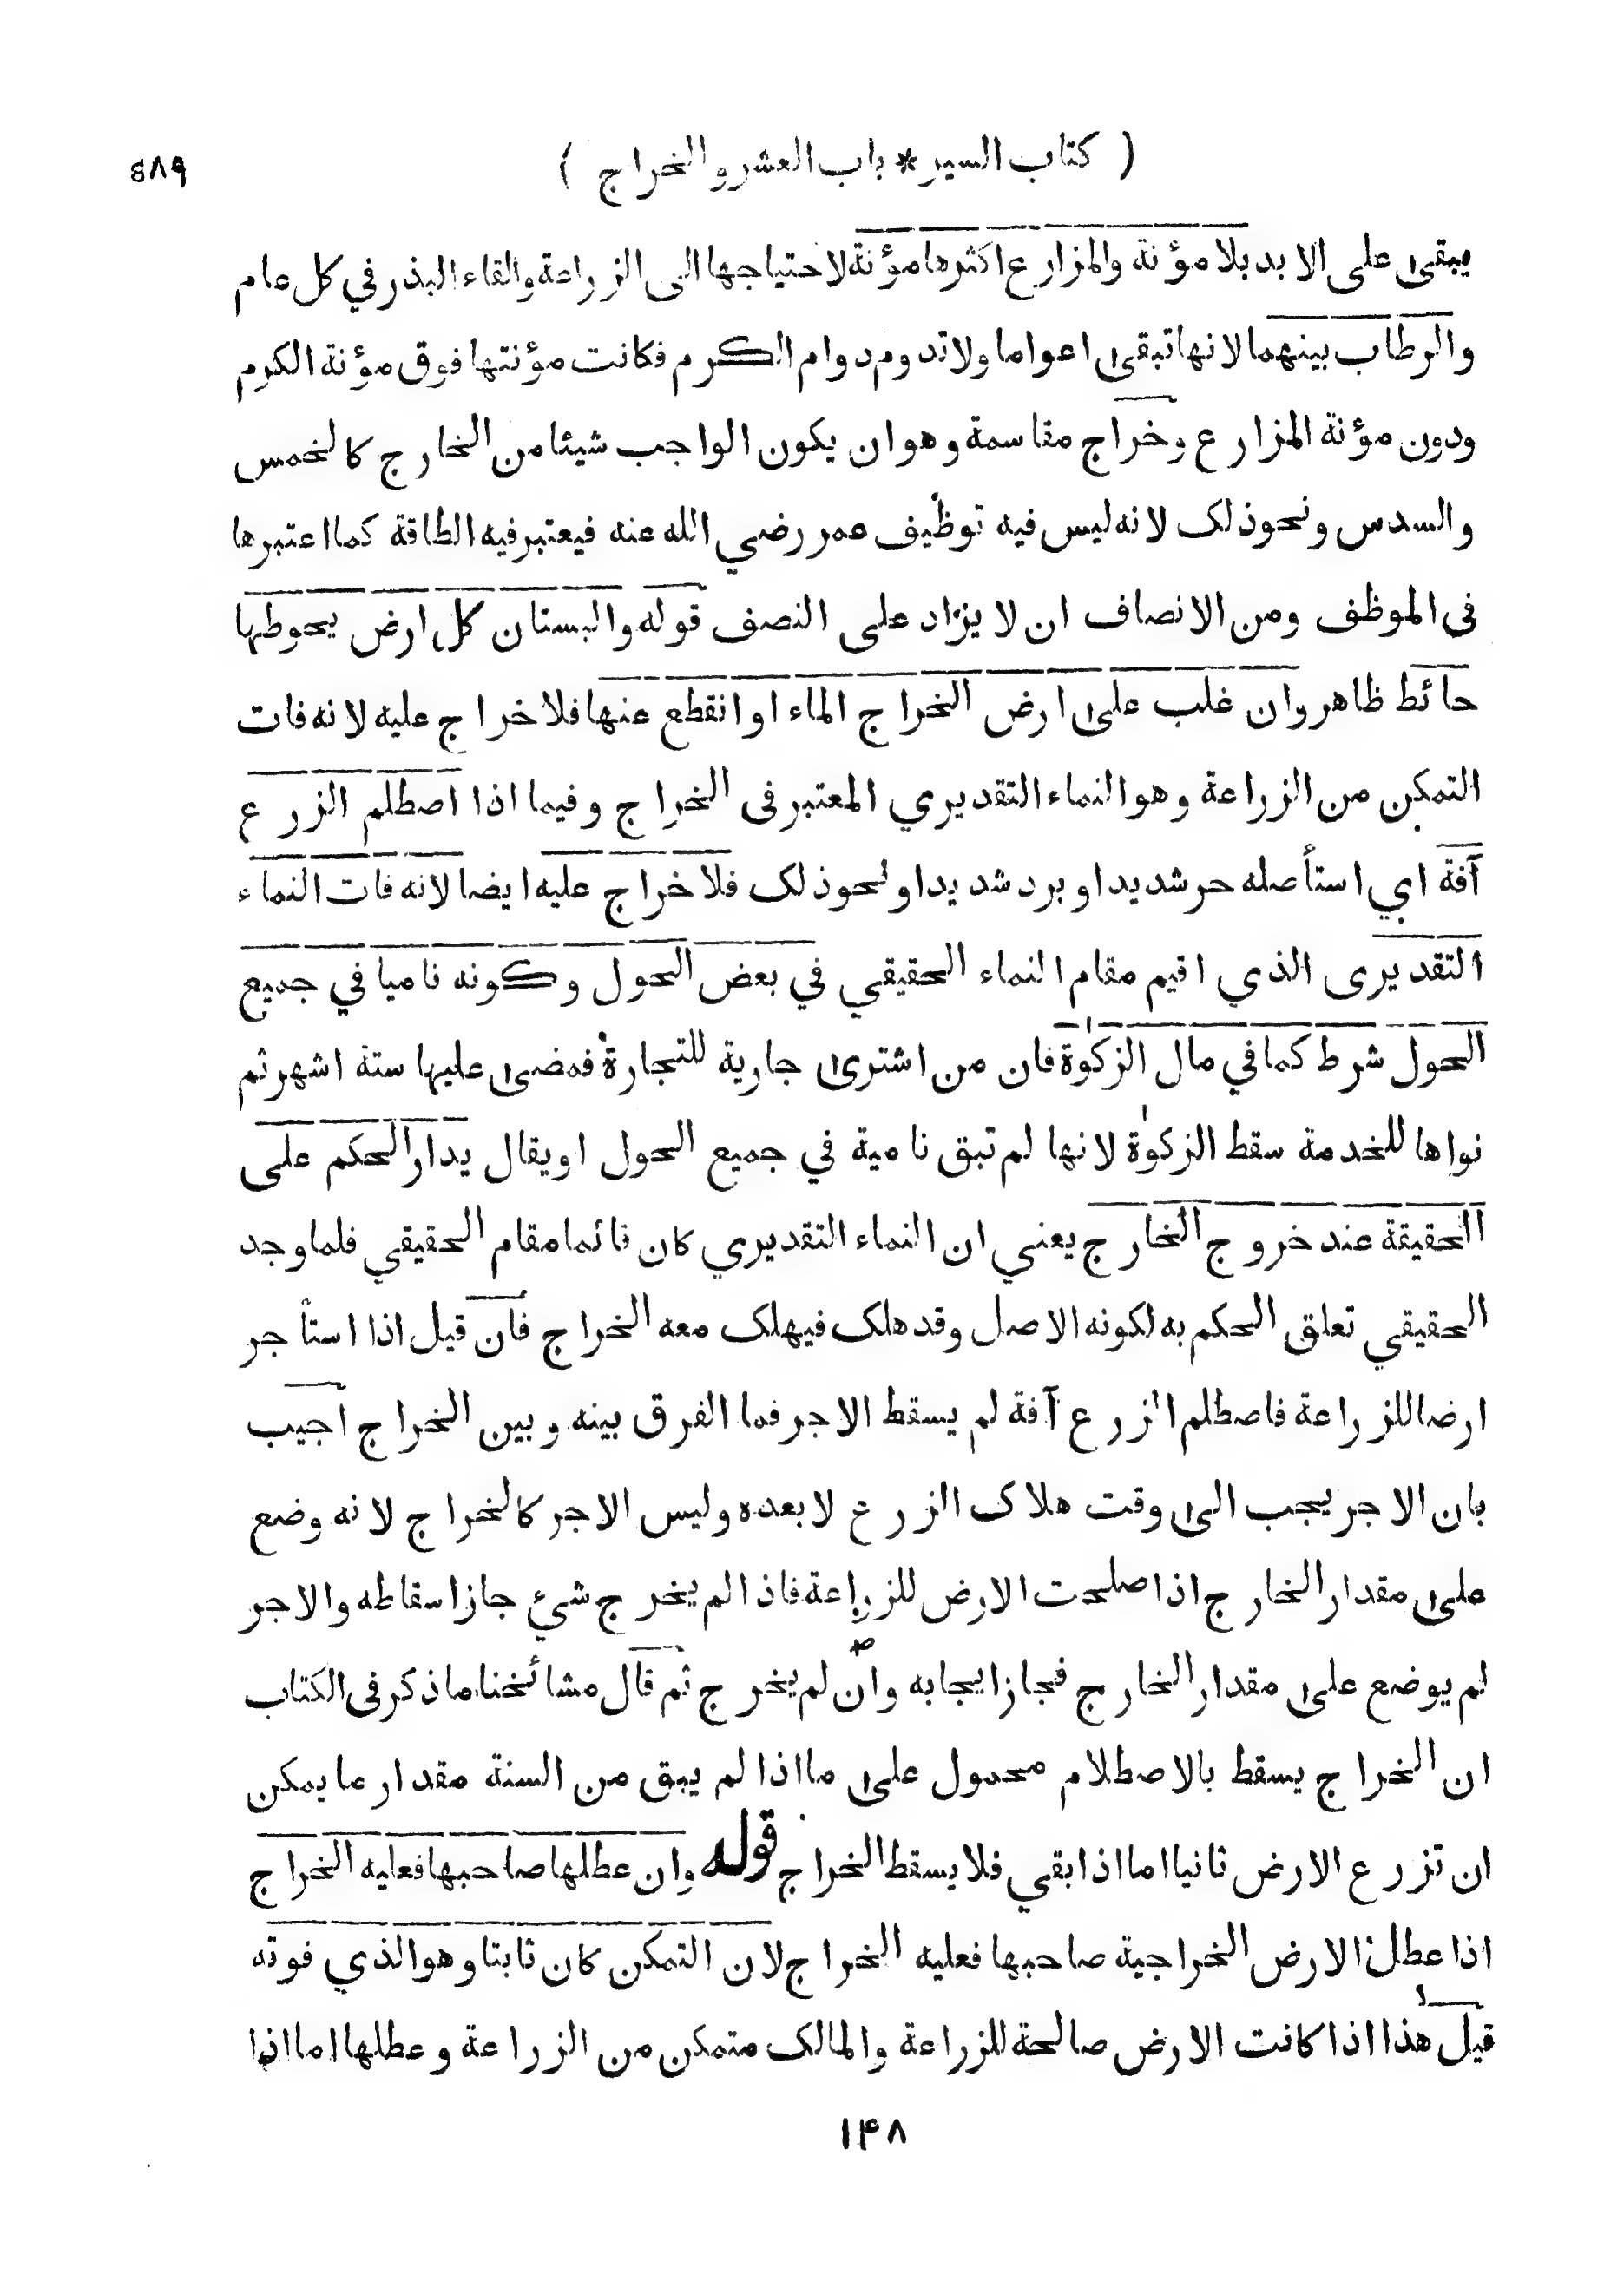 ( كتاب السير * باب العشر والخراج ) ٥٨٩
يبقى على الابد بلا مؤنة والمزارع اكثرها مؤنة لاحتياجها الى الزراعة والقاء البذر في كل عام
والرطاب بينهما لانها تبقى اعواما ولا تدوم دوام الكرم فكانت مؤنتها فوق مؤنة الكرم
ودون مؤنة المزارع وخراج مقاسمة وهو ان يكون الواجب شيئا من الخارج كالخمس
والسدس ونحو ذلك لانه ليس فيه توظيف عمر رضي الله عنه فيعتبر فيه الطاقة كما اعتبرها
فى الموظف ومن الانصاف ان لا يزاد على النصف قوله والبستان كل ارض يحوطها
حائط ظاهر وان غلب على ارض الخراج الماء او انقطع عنها فلا خراج عليه لانه فات
التمكن من الزراعة وهو النماء التقديري المعتبر فى الخراج وفيما اذا اصطلم الزرع
آفة اي استأصله حر شديد او برد شديد او نحو ذلك فلا خراج عليه ايضا لانه فات النماء
التقديرى الذي اقيم مقام النماء الحقيقي في بعض الحول وكونه ناميا في جميع
الحول شرط كما في مال الزكوٰة فان من اشترى جارية للتجارة فمضى عليها ستة اشهر ثم
نواها للخدمة سقط الزكوٰة لانها لم تبق نامية في جميع الحول او يقال يدار الحكم على
الحقيقة عند خروج الخارج يعني ان النماء التقديري كان قائما مقام الحقيقي فلما وجد
الحقيقي تعلق الحكم به لكونه الاصل وقد هلك فيهلك معه الخراج فان قيل اذا استأجر
ارضا للزراعة فاصطلم الزرع آفة لم يسقط الاجر فما الفرق بينه وبين الخراج اجيب
بان الاجر يجب الى وقت هلاك الزرع لا بعده وليس الاجر كالخراج لانه وضع
على مقدار الخارج اذا صلحت الارض للزراعة فاذا لم يخرج شئ جاز اسقاطه والاجر
لم يوضع على مقدار الخارج فجاز ايجابه وان لم يخرج ثم قال مشائخنا ما ذكر فى الكتاب
ان الخراج يسقط بالاصطلام محمول على ما اذا لم يبق من السنة مقدار ما يمكن
ان تزرع الارض ثانيا اما اذا بقي فلا يسقط الخراج قوله وان عطلها صاحبها فعليه الخراج
اذا عطل الارض الخراجية صاحبها فعليه الخراج لان التمكن كان ثابتا وهو الذي فوته
قيل هذا اذا كانت الارض صالحة للزراعة والمالك متمكن من الزراعة وعطلها اما اذا
١۴٨